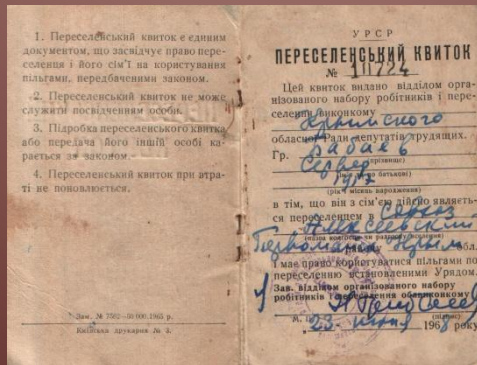 1. Переселенський квиток є єдиним
документом, що засвідчує право пере-
селенця і його сім'ї на користування
пільгами, передбаченими законом.
2. Переселенський квиток не може
служити посвідченням особи.
3. Підробка переселенського квитка
або передача його іншій особі ка-
рається за законом.
4. Переселенський квиток при втра-
ті не поновлюється.
Зам. № 7582—50 000 1965 р.
Київська друкарня № 5.
УРСР
ПЕРЕСЕЛЕНСЬКИЙ КВИТОК
№ 10724
Цей квиток видано відділом орга-
нізованого набору робітників і пере-
селення виконкому
Крымского
обласної Ради депутатів трудящих.
Гр. Бабаев
(прізвище)
Сервер
(ім'я по батькові)
1917
(рік і місяць народження)
в тім, що він з сім'єю дійсно являєть-
ся переселенцем в совхоз
Алексеевский
Крым обл.
і має право користуватися пільгами по
переселенню встановленими Урядом.
Зав. відділом організованого набору
робітників і переселення облвиконкому
(підпис)
23 июня 1968 року